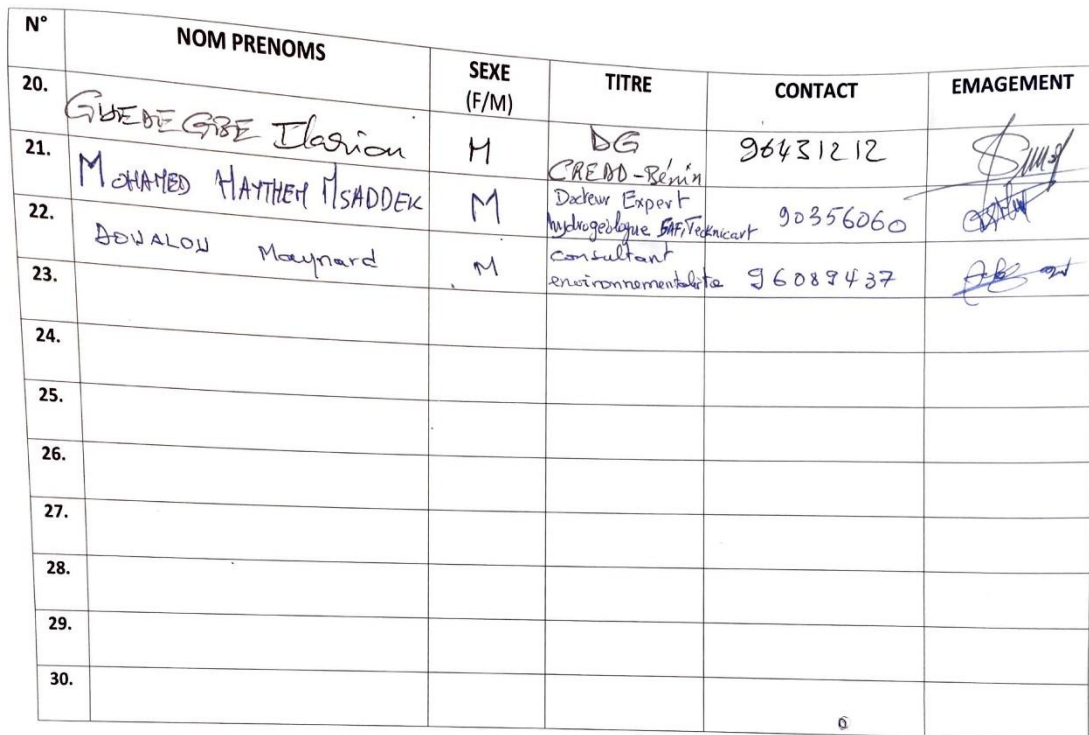 N° NOM PRENOMS SEXE (F/M) TITRE CONTACT EMAGEMENT
20. GBEDEGBE Ilarion M DG CREDD-Bénin 96431212
21. MOHAMED HAYTHEM MSADDEK M Docteur Expert hydrogéologue SAFI, Technicart 90356060
22. Maynard M consultant environnementaliste 96089437
23.
24.
25.
26.
27.
28.
29.
30.
6